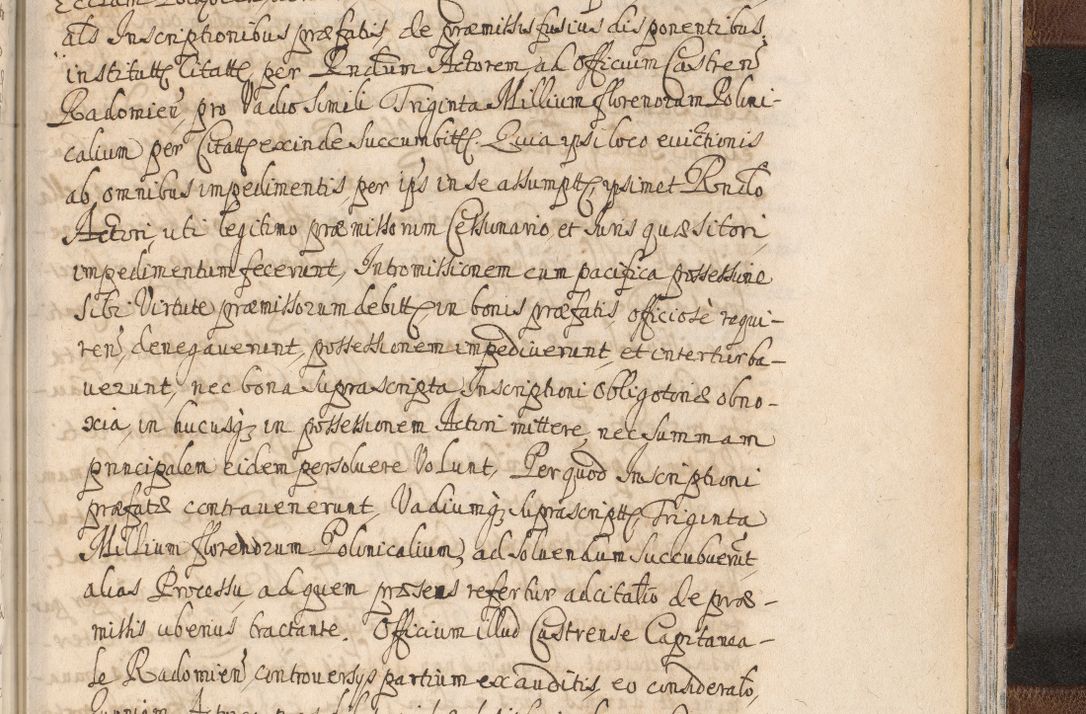 als Inscriptionibus præfatis, de præmissis fusius disponentibus,
institutt Citatt per Rndum Actorem ad Officium Castren
Radomien, pro Vadio simili Triginta Millium florenorum Poloni-
calium per Citatt exinde succumbitt. Quia ipsi loco evictionis
ab omnibus impedimentis, per ips in se assumptt, ipsimet Rndo
Actori, uti legitimo præmissorum Cessionario, et Juris quæsitori,
impedimentum fecerunt, Intromissionem cum pacifica possessione
sibi Virtute præmissorum debitt in bonis præfatis officiosè requi-
ren, denegaverunt, possessionem impediverunt, et interturba-
verunt, nec bona suprascripta Inscriptioni Obligatoriæ obno-
xia, in hucusq; in possessionem Actori mittere, nec summam
principalem eidem persolvere Volunt, Per quod Inscriptioni
præfatæ contravenerunt, Vadiumq; suprascriptt, Triginta
Millium florenorum Polonicalium, ad solvendum succubuerunt,
alias Processu, ad quem præsens refertur adcitatio de præ-
missis uberius tractante. Officium illud Castrense Capitanea-
le Radomien, controversijs partium exauditis, eo considerato,